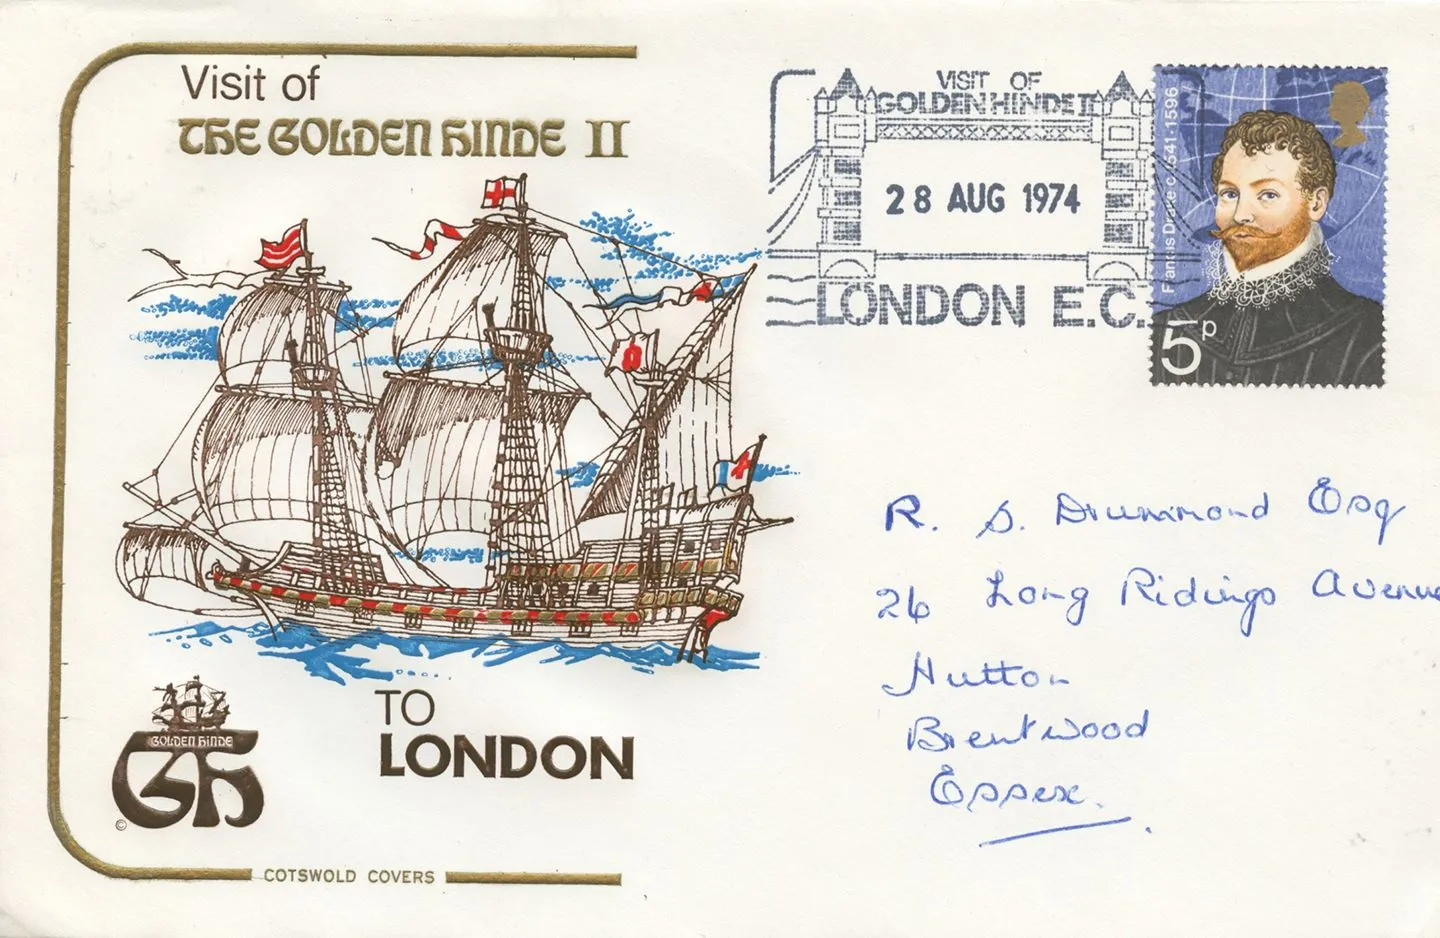 Visit of
THE GOLDEN HINDE II
TO
LONDON
GOLDEN HINDE
GH
©
COTSWOLD COVERS
VISIT OF
GOLDEN HINDE II
28 AUG 1974
LONDON E.C.
Francis Drake c.1541-1596
5p
R. S. Drummond Esq
26 Long Ridings Avenue
Hutton
Brentwood
Essex.